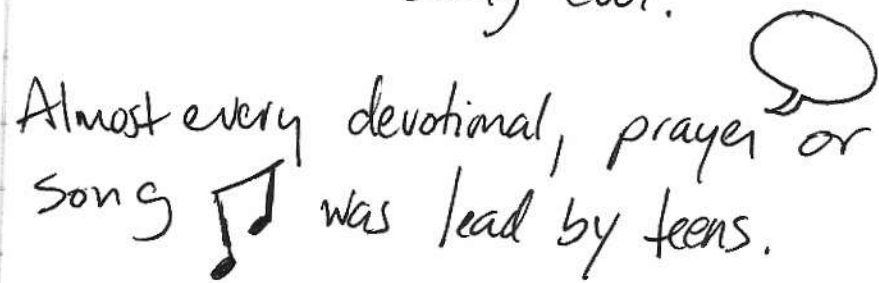 Almost every devotional, prayer or
song was lead by teens.